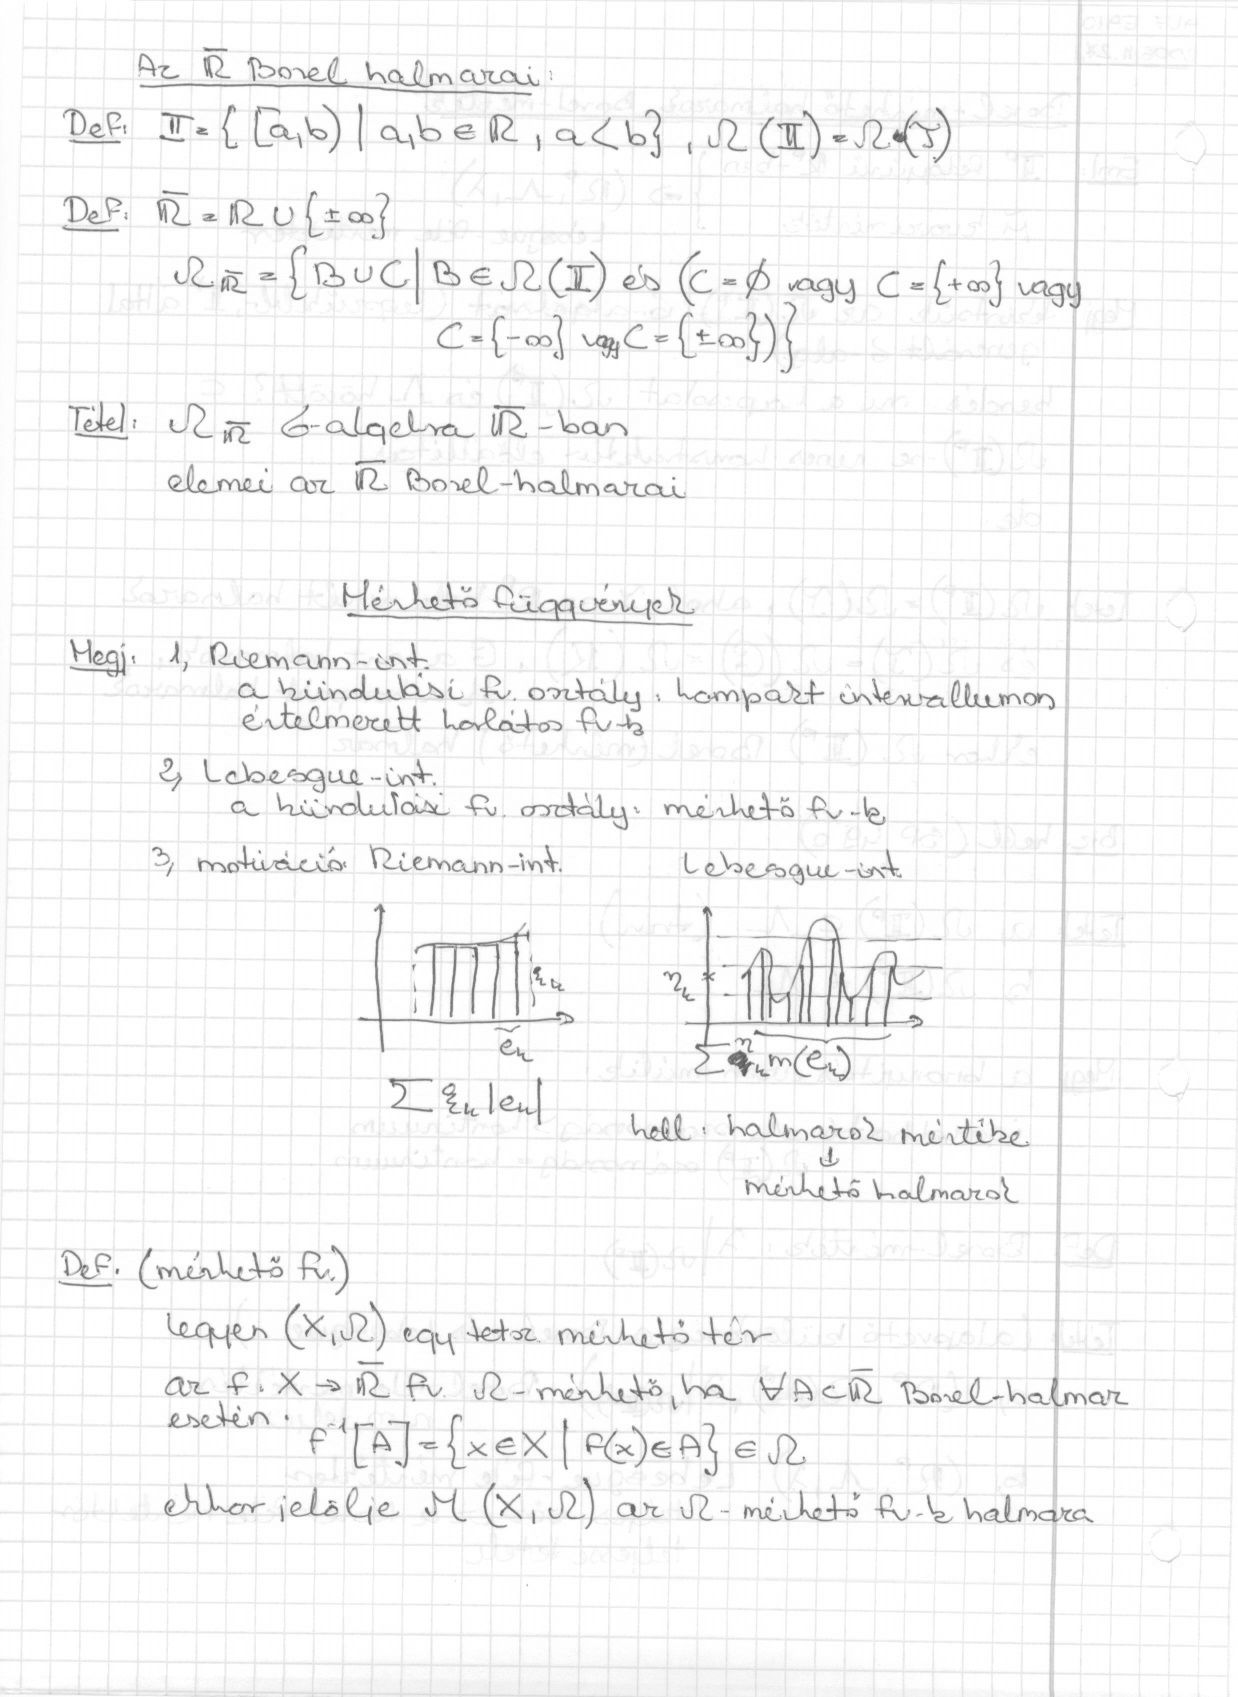 Az ℝ̅ Borel halmazai:
Def: 𝕀 = { [a,b) | a,b ∈ ℝ, a < b }, Ω(𝕀) = Ω(J)
Def: ℝ̅ = ℝ ∪ {±∞}
Ω_ℝ̅ = { B∪C | B ∈ Ω(𝕀) és (C = ∅ vagy C = {+∞} vagy
C = {-∞} vagy C = {±∞}) }
Tétel: Ω_ℝ̅ σ-algebra ℝ̅-ban
elemei az ℝ̅ Borel-halmazai
Mérhető függvények
Megj: 1, Riemann-int.
a kiindulási fv. osztály: kompakt intervallumon
értelmezett korlátos fv-k
2, Lebesgue-int.
a kiindulási fv. osztály: mérhető fv-k
3, motiváció: Riemann-int. Lebesgue-int.
ξₖ
ηₖ
eₖ
∑ ξₖ |eₖ|
∑ ηₖ m(eₖ)
kell: halmazok mértéke
↓
mérhető halmazok
Def: (mérhető fv.)
legyen (X,Ω) egy tetsz. mérhető tér
az f: X → ℝ̅ fv. Ω-mérhető, ha ∀A⊂ℝ̅ Borel-halmaz
esetén:
f⁻¹[A] = { x ∈ X | f(x) ∈ A } ∈ Ω
ekkor jelölje M (X,Ω) az Ω-mérhető fv-k halmaza